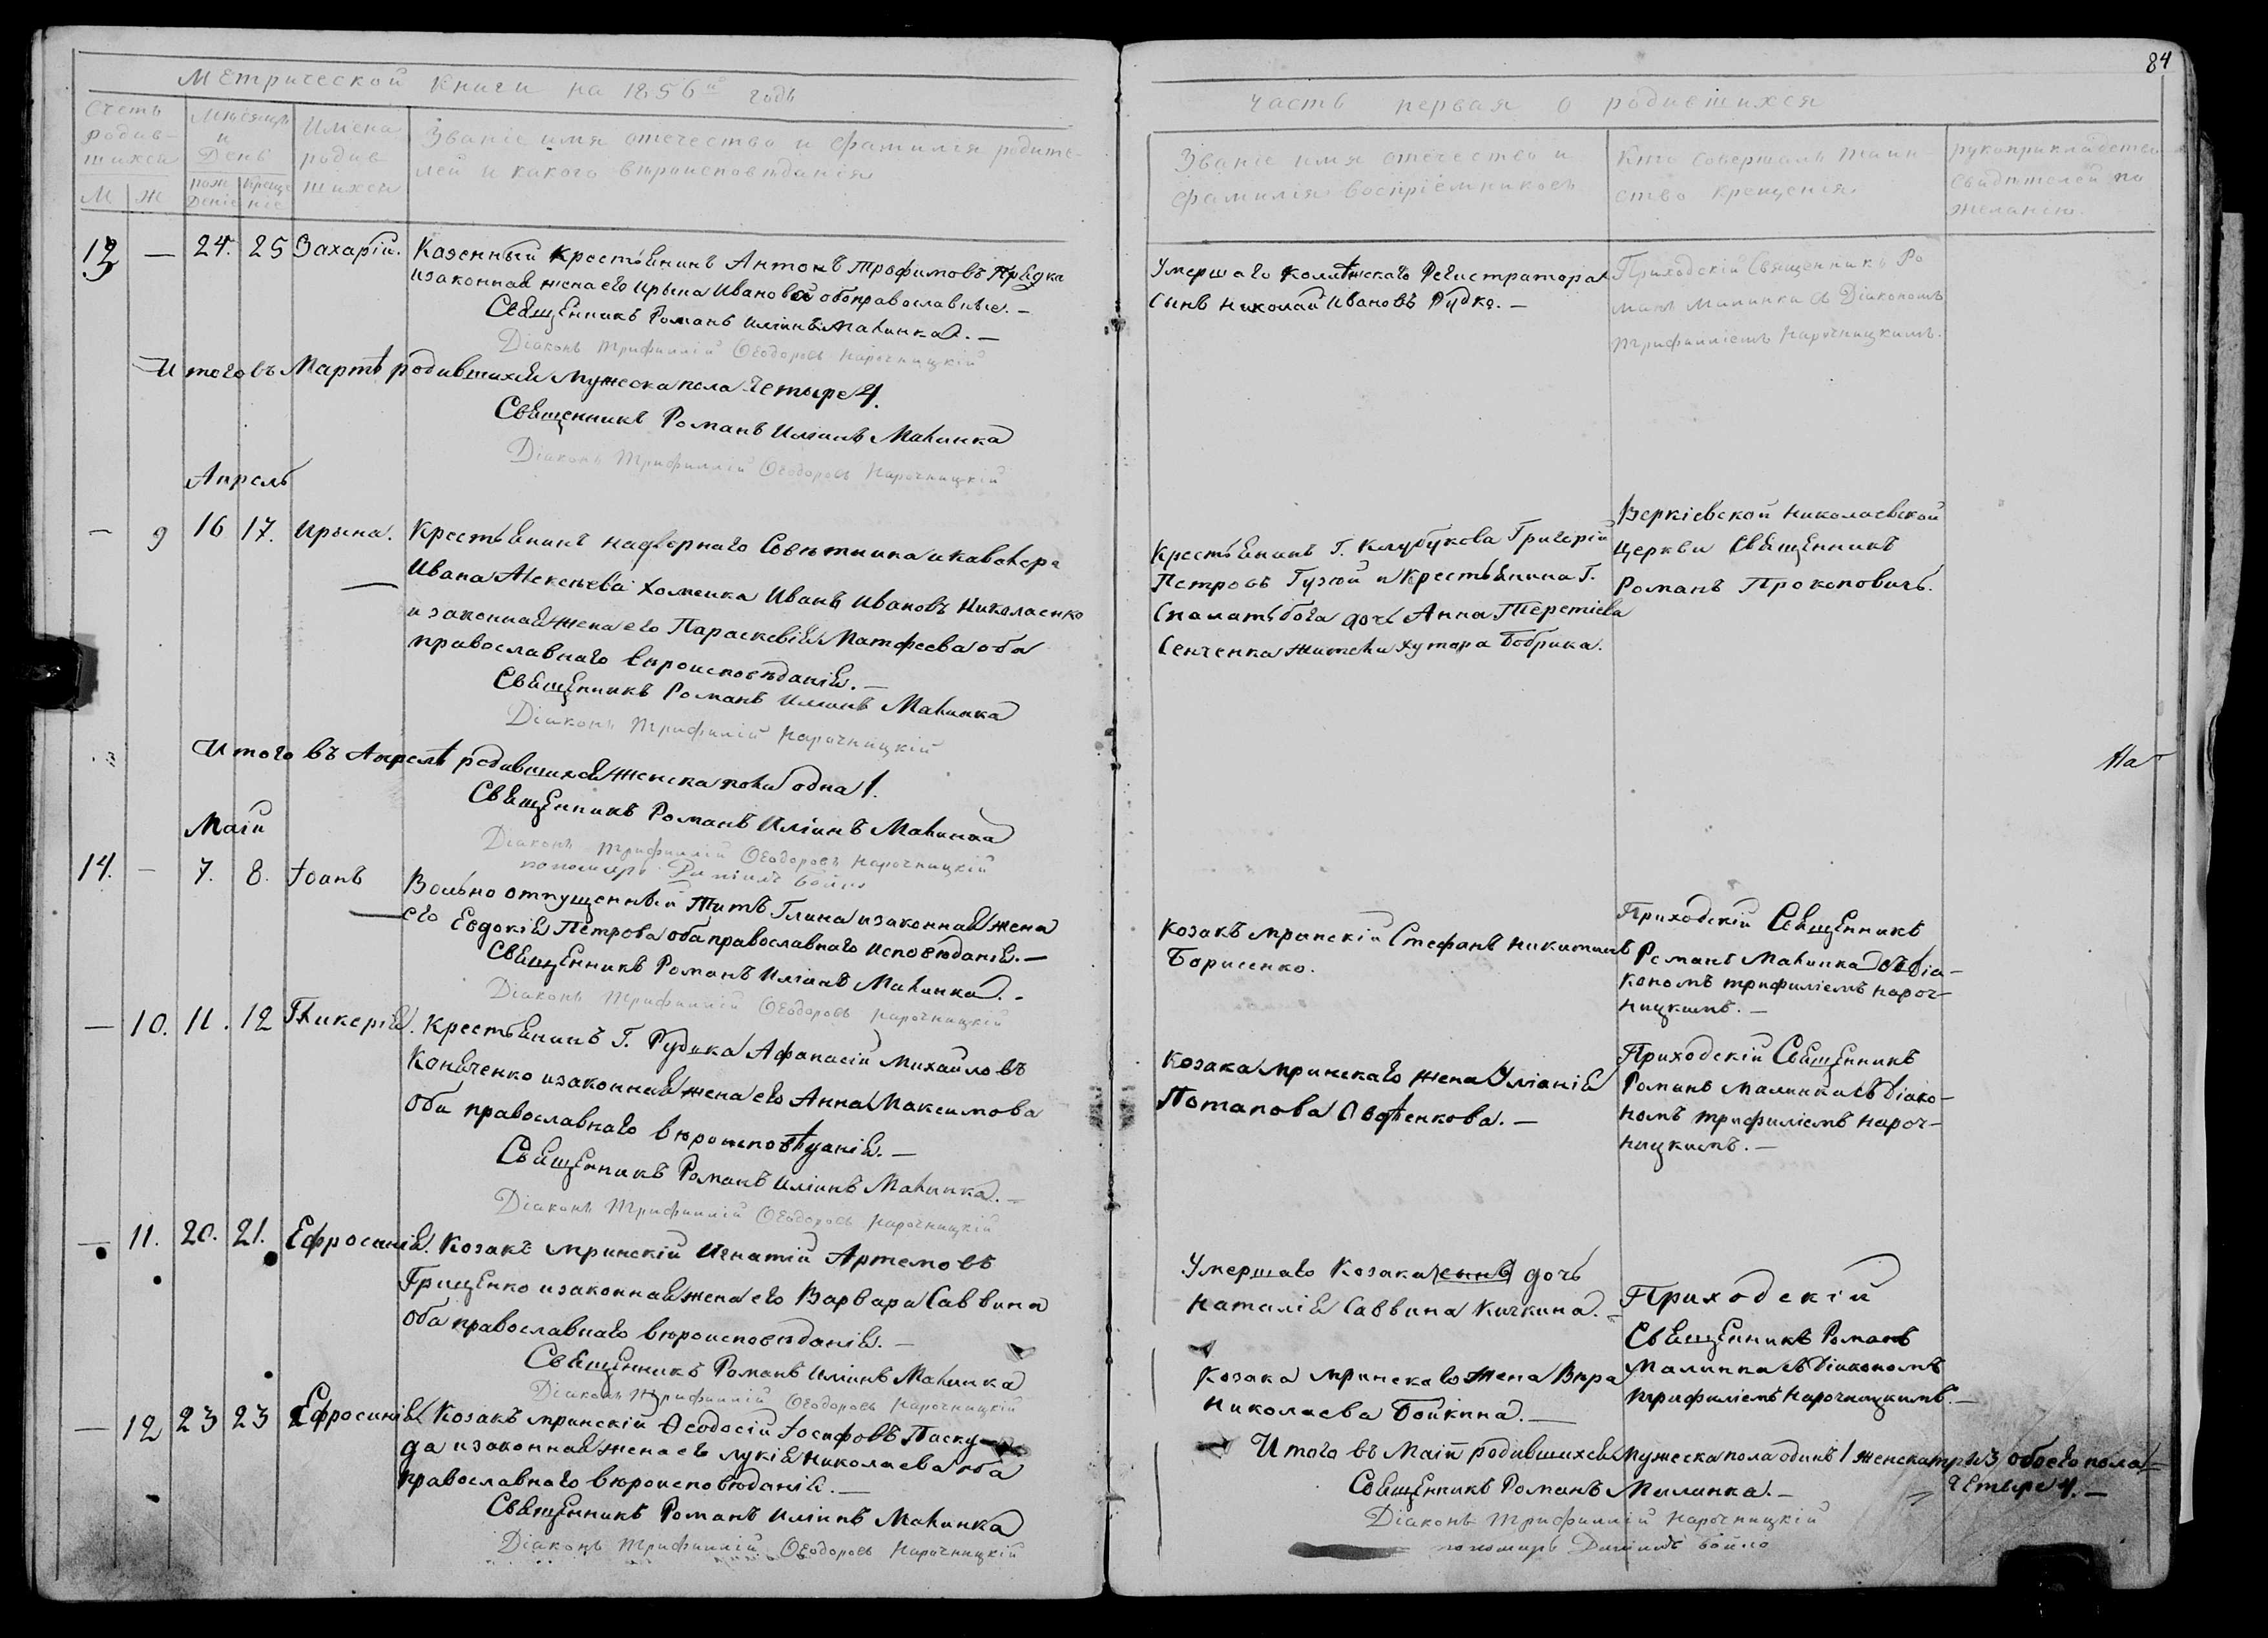 Метрической книги на 1856й годъ
Счетъ родив-шихся
М
Ж
Мѣсяцъ и День
рож деніе
креще ніе
Имена родив шихся
Званіе имя отечество и фамилія родите-
лей и какого вѣроисповѣданія
13
—
24.
25
Захарій.
Казенный крестьянинъ Антонъ Трофимовъ
и законная жена его Ирына Иванова оба православные. —
Священникъ Романъ Иліинъ Малинка. —
Діаконъ Трифиллій Ѳеодоровъ Нарочницкій
Итого въ Мартѣ родившихся мужеска пола четыре 4.
Священникъ Романъ Иліинъ Малинка
Діаконъ Трифиллій Ѳеодоровъ Нарочницкій
Апрель
—
9
16
17.
Ирына.
Крестьянинъ надворнаго Совѣтника и кавалера
Ивана Алексѣева Хоменка Иванъ Ивановъ Николаенко
и законная жена его Параскевія Матфеева оба
православнаго вѣроисповѣданія. —
Священникъ Романъ Иліинъ Малинка
Діаконъ Трифилій Нарочницкій
Итого въ Апрелѣ родившихся женска пола одна 1.
Священникъ Романъ Иліинъ Малинка
Діаконъ Трифиллій Ѳеодоровъ Нарочницкій
пономарь Даніилъ Бойко
Маій
14.
—
7.
8.
Іоанъ
Вольно отпущенный Титъ Глина и законная жена
его Евдокія Петрова оба православнаго исповѣданія. —
Священникъ Романъ Иліинъ Малинка. -
Діаконъ Трифиллій Ѳеодоровъ Нарочницкій
—
10.
11.
12
Гликерія.
Крестьянинъ Г. Рудика Афанасій Михайловъ
Коняченко и законная жена его Анна Максимова
оба православнаго вѣроисповѣданія. —
Священникъ Романъ Иліинъ Малинка. —
Діаконъ Трифиллій Ѳеодоровъ Нарочницкій
—
11.
20.
21.
Ефросинія.
Козакъ мринскій Игнатій Артемовъ
Грищенко и законная жена его Варвара Саввина
оба православнаго вѣроисповѣданія. —
Священникъ Романъ Иліинъ Малинка
Діаконъ Трифиллій Ѳеодоровъ Нарочницкій
—
12
23
23
Ефросинія
Козакъ мринскій Ѳеодосій Іосифовъ Паску-
да и законная жена его Лукія Николаева оба
православнаго вѣроисповѣданія. —
Священникъ Романъ Иліинъ Малинка
Діаконъ Трифиллій Ѳеодоровъ Нарочницкій
84
часть первая о родившихся
Званіе имя отечество и
фамилія воспріемниковъ
Кто совершалъ таин-
ство крещенія
рукоприкладство
свидѣтелей по
желанію.
Умершаго Колежскаго Регистратора
Сынъ Николай Ивановъ Рудко. —
Приходскій Священникъ Ро
манъ Малинка съ Діакономъ
Трифилліемъ Нарочницкимъ.
Крестьянинъ Г. Кочубукова Григорій
Петровъ Гузій и Крестьянина Г.
дочь Анна Терентіева
Сенченка жители хутора Бобрика.
Веркіевской Николаевской
Церкви Священникъ
Романъ Прокоповичъ.
На
Козакъ мринскій Стефанъ Никитинъ
Борисенко.
Приходскій Священникъ
Романъ Малинка съ Діа-
кономъ Трифиліемъ Нароч-
ницкимъ. —
Козака мринскаго жена Уліанія
Потапова Овдѣенкова. —
Приходскій Священникъ
Романъ Малинка съ Діако-
номъ Трифиліемъ Нароч-
ницкимъ. —
Умершаго Козака сынъ дочь
Наталія Саввина Кичкина. —
Козака мринскаго жена Вѣра
Николаева Бойкина. —
Приходскій
Священникъ Романъ
Малинка съ Діакономъ
Трифиліемъ Нарочницкимъ. —
Итого въ Маіи родившихся мужеска пола одинъ 1 женска три 3 обоего пола
четыре 4. —
Священникъ Романъ Малинка. —
Діаконъ Трифиллій Нарочницкій
пономарь Даніилъ Бойко